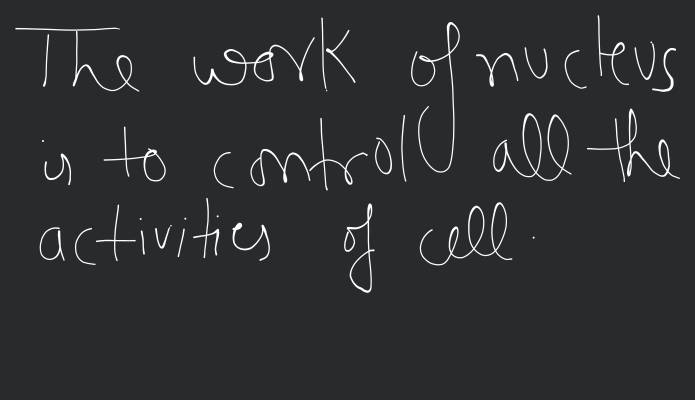 The work of nucleus
is to control all the
activities of cell.